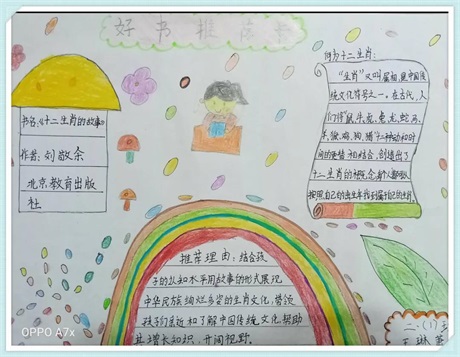 好书推荐卡
书名:《十二生肖的故事》
作者:刘敬余
北京教育出版
社
何为十二生肖:
"生肖"又叫属相,是中国传
统文化符号之一。在古代,人
们将"鼠、牛、虎、兔、龙、蛇、马、
羊、猴、鸡、狗、猪"十二种动物和时
间的更替相结合,创造出了
十二生肖的概念,每个人都能
按照自己的出生年找到属于自己的生肖。
推荐理由:结合孩
子的认知水平用故事的形式展现
中华民族绚烂多姿的生肖文化,带领
孩子们亲近和了解中国传统文化,帮助
其增长知识,开阔视野。
二·(1)
王琳
OPPO A7x